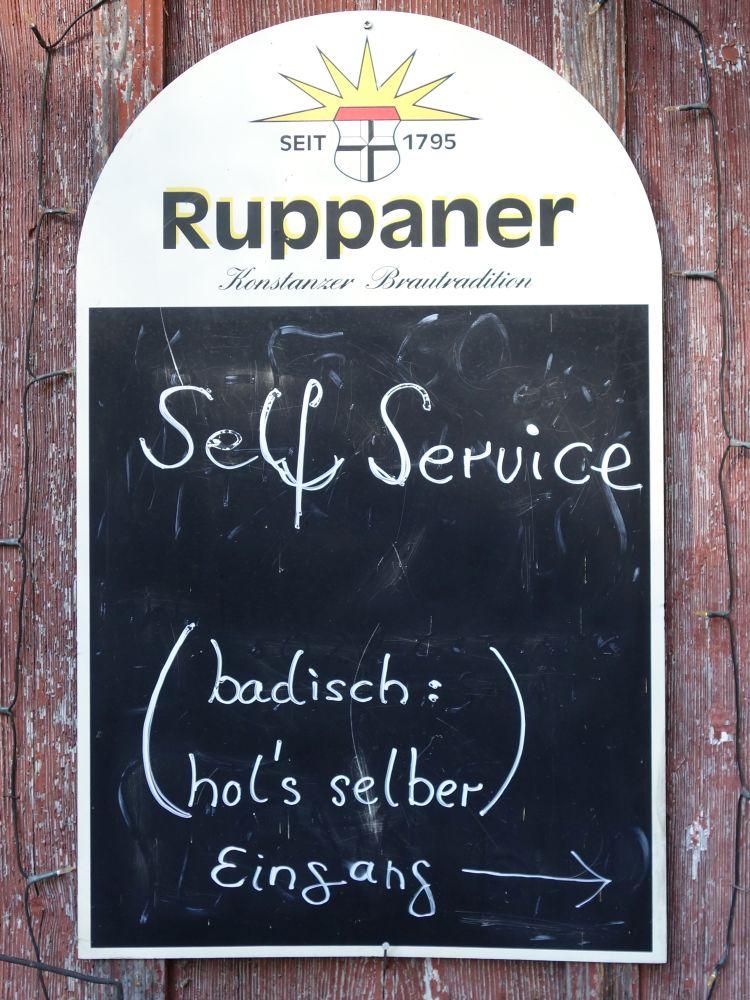 SEIT 1795
Ruppaner
Konstanzer Brautradition
Self Service
(badisch:
hol's selber)
Eingang →